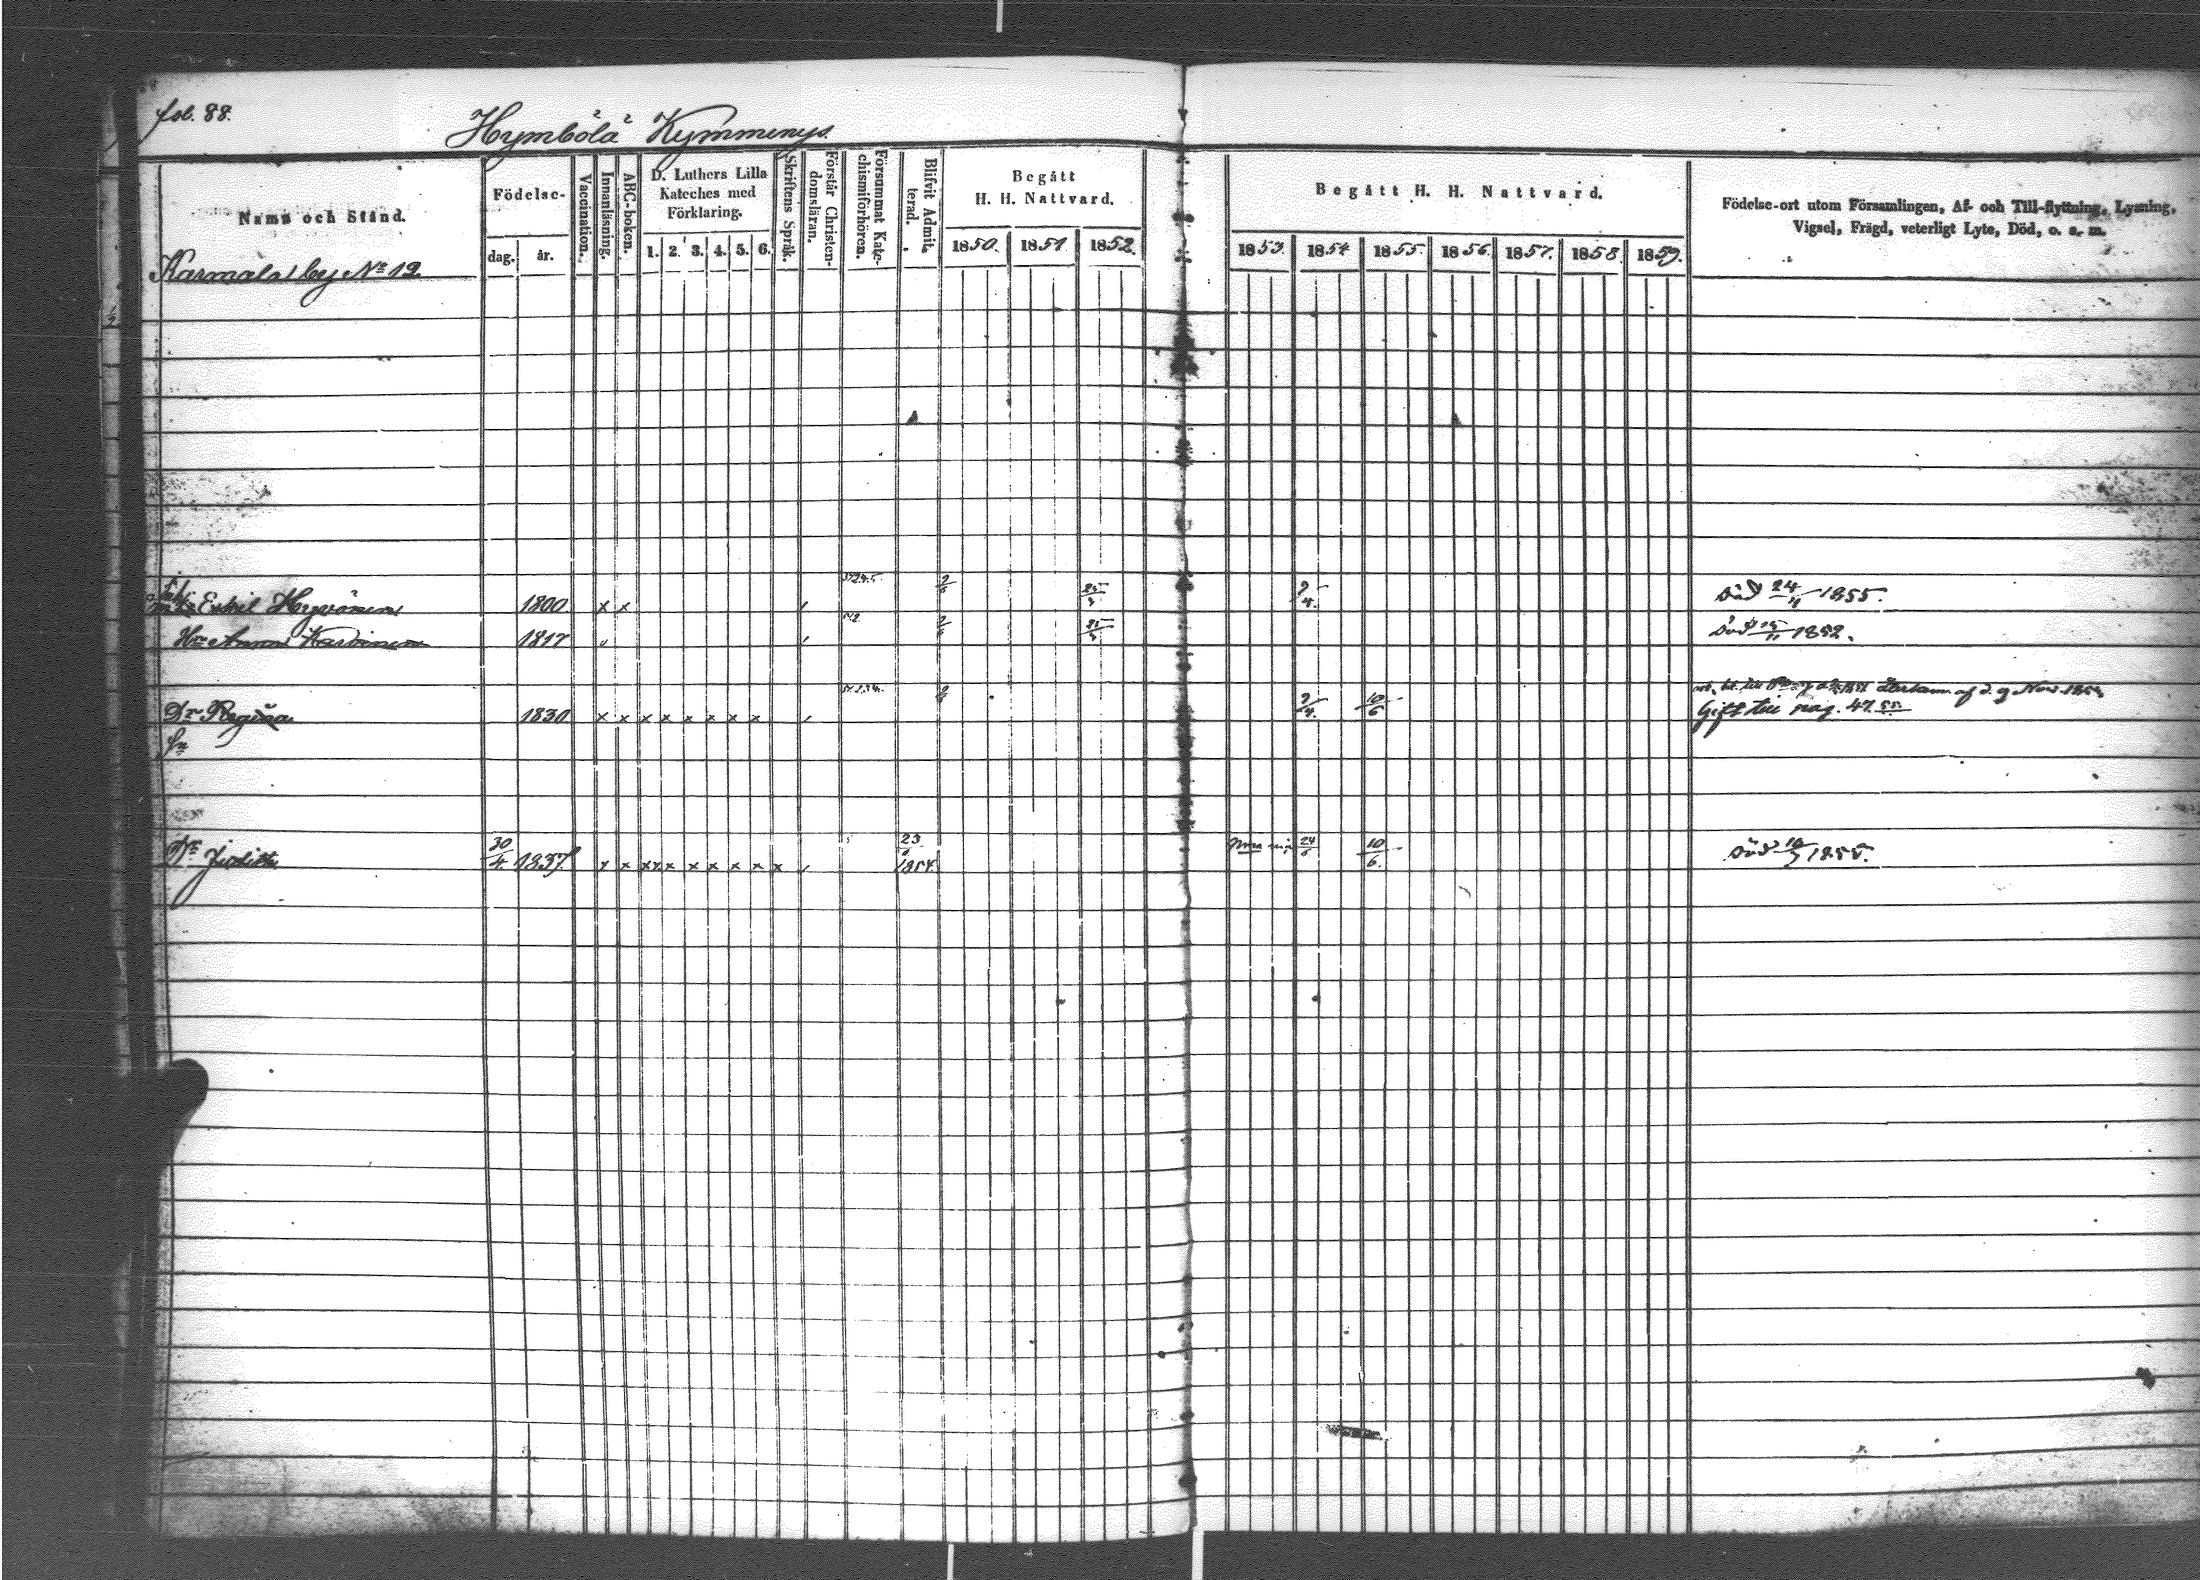 fol. 88.
Hymbölä Kymmenys
Namn och Stånd.
Födelse-
dag. år.
Vaccination.
Innanläsning.
ABC-boken.
D. Luthers Lilla
Kateches med
Förklaring.
1. 2. 3. 4. 5. 6.
Skriftens Språk.
Förstår Christen-
domsläran.
Försummat Kate-
chismiförhören.
Blifvit Admit-
terad.
Begått
H. H. Nattvard.
1850. 1851. 1852.
Begått H. H. Nattvard.
1853. 1854. 1855. 1856. 1857. 1858. 1859.
Födelse-ort utom Församlingen, Af- och Till-flyttning, Lysning,
Vigsel, Frägd, veterligt Lyte, Död, o. s. m.
Karmalas by No 12
Eskil Hyvönen 1800 x x 9/4. död 24/4 1855.
Hu Anna Karvinen 1817 död 15/11 1852.
återkom af d. 9 Nov. 1854
Dr Regina 1830 x x x x x x x x 9/4. 10/6 Gift till pag. 47. 55
Dr Judith 30/4 1837 x x x x x x x x x 23/6 1854. 24/6 10/6. död 10/7 1855.